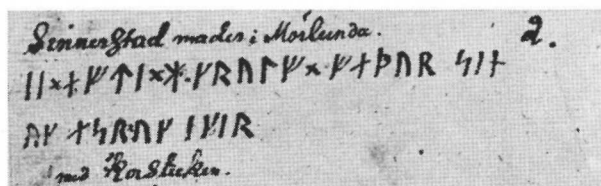 Sinnerstad mader i Mörlunda. 2.
ᛁᛁ×ᚾ·ᚠᛏᛁ×ᚼ·ᚠᚱᚢᛚᚠ× ᚠᚾᚦᚢᚱ ᛋᛁᚾ
ᚢᚠ ᚾᛋᚱ·ᚢᚠ ᛁᚠᛁᚱ
med Korstecken.